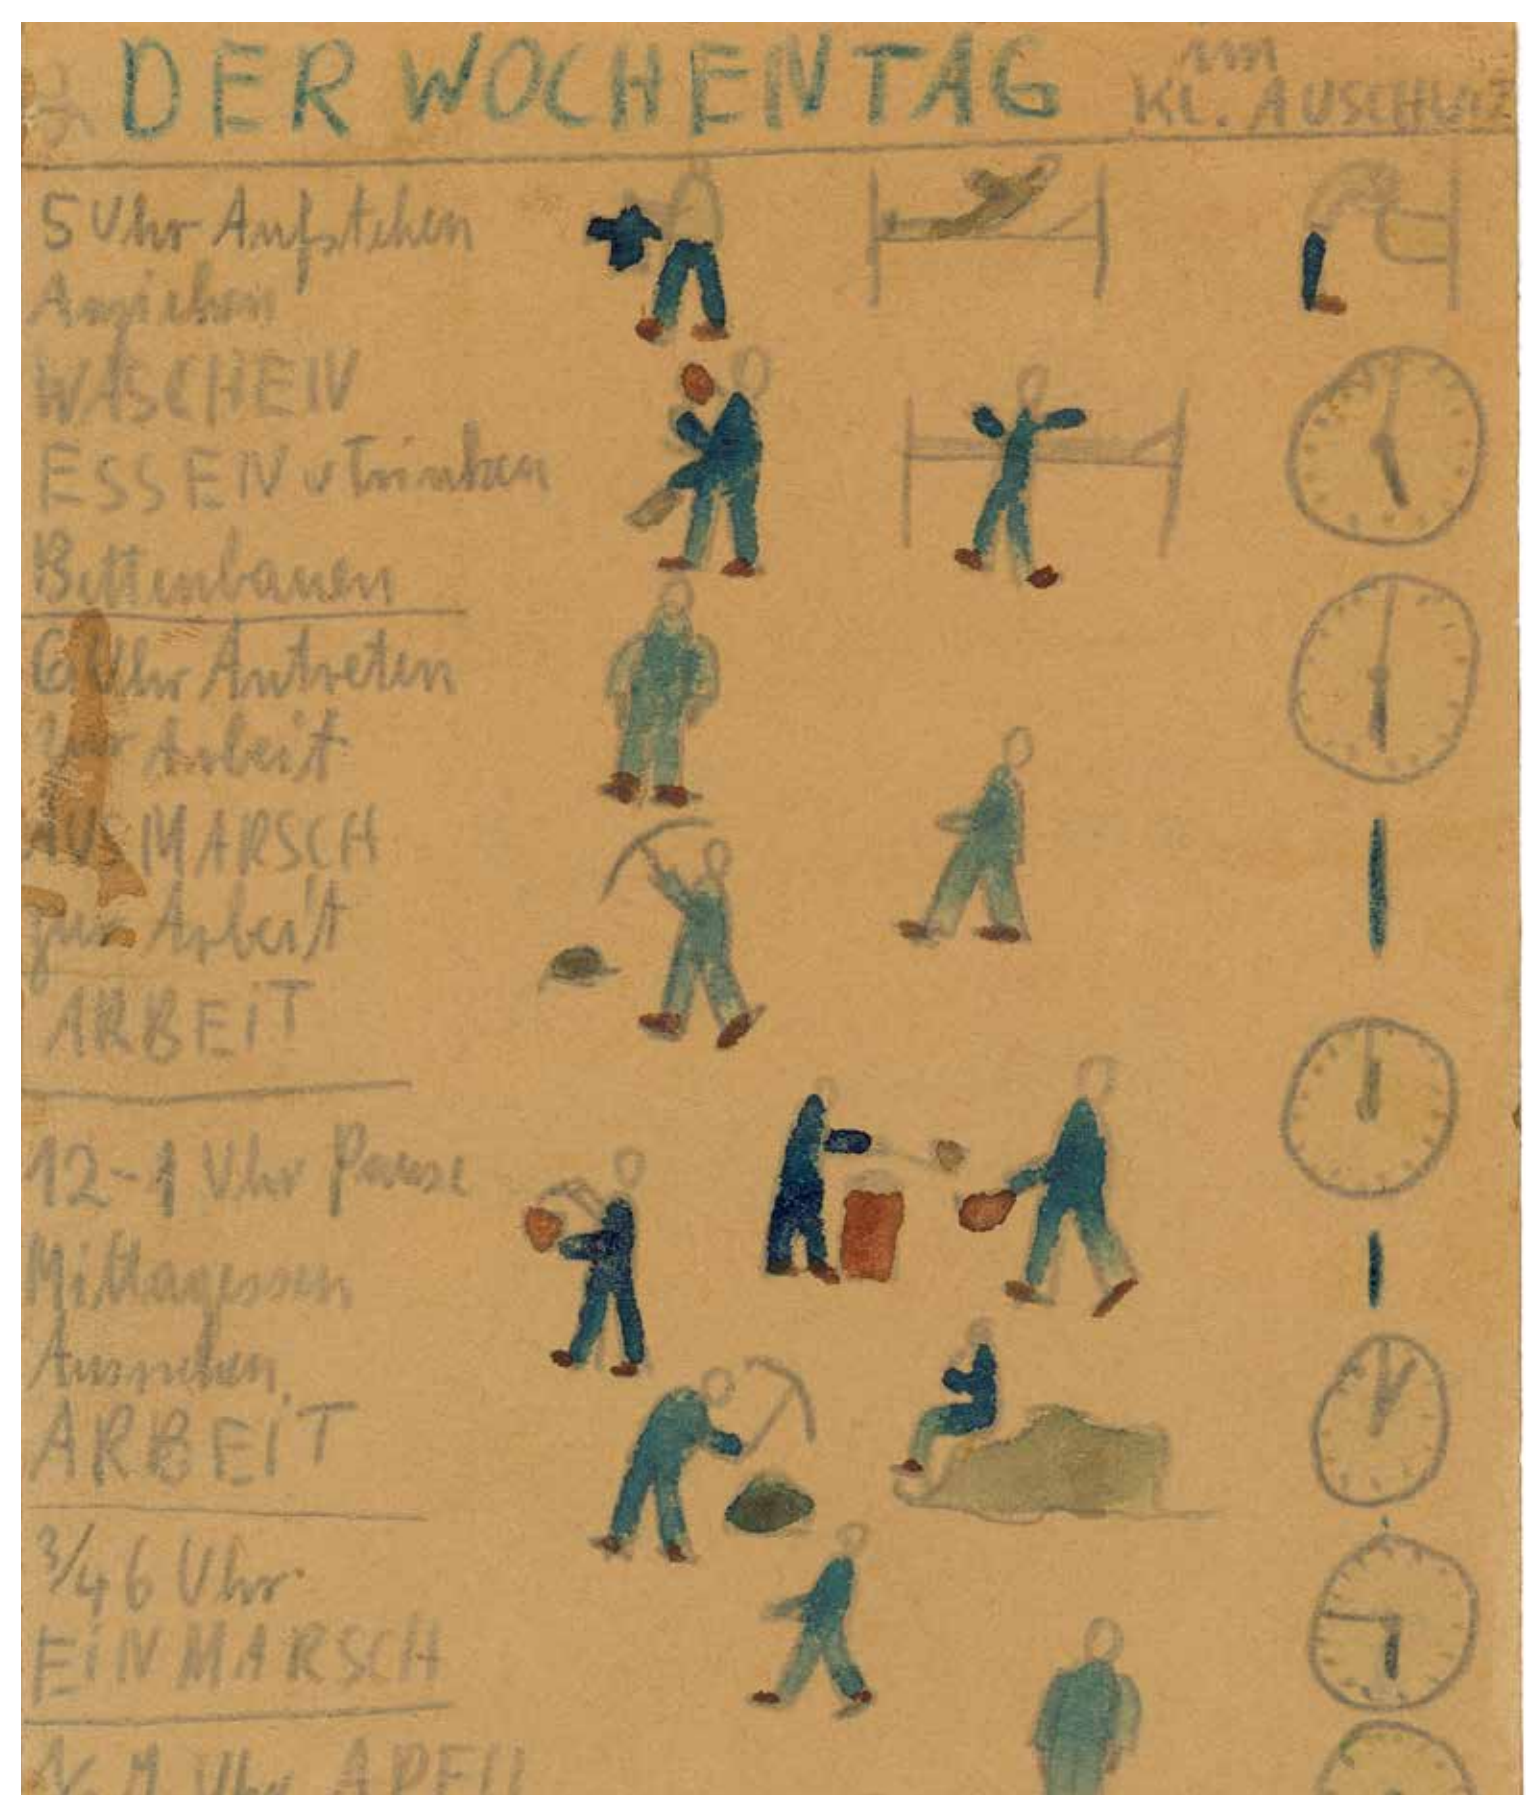 DER WOCHENTAG im KL. AUSCHWITZ
5 Uhr Aufstehen
Anziehen
WASCHEN
ESSEN u Trinken
Bettenbauen
6 Uhr Antreten
zur Arbeit
AUSMARSCH
zur Arbeit
ARBEIT
12-1 Uhr Pause
Mittagessen
Ausruhen
ARBEIT
3/4 6 Uhr
EINMARSCH
Uhr APELL